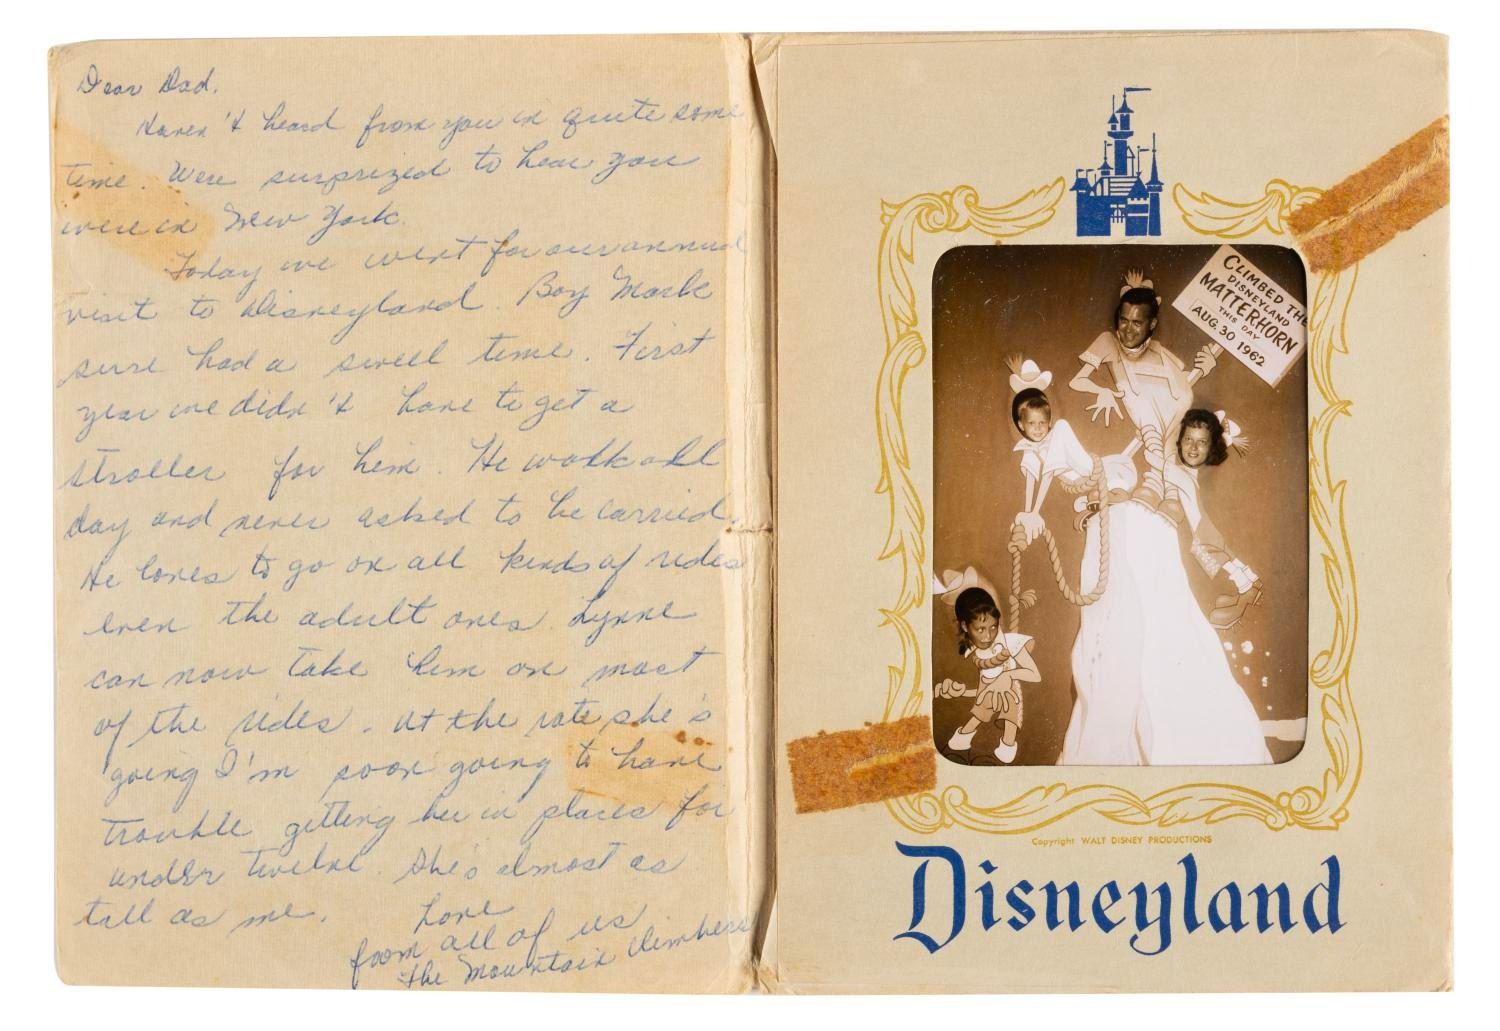 Dear Dad.
Haven't heard from you in quite some
time. Were surprized to hear you
were in New York.
Today we went for our annual
visit to Disneyland. Boy Mark
sure had a swell time. First
year we didn't have to get a
stroller for him. He walk all
day and never asked to be carried.
He loves to go on all kinds of rides
even the adult ones. Lynne
can now take him on most
of the rides. At the rate she's
going I'm soon going to have
trouble getting her in places for
under twelve. She's almost as
tall as me.
Love
from all of us
the Mountain Climbers
CLIMBED THE
DISNEYLAND
MATTERHORN
THIS DAY
AUG. 30 1962
Copyright WALT DISNEY PRODUCTIONS
Disneyland